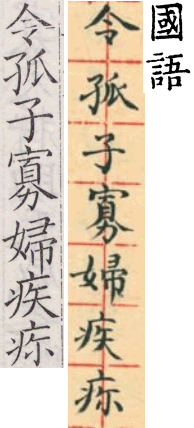 國語
令孤子寡婦疾疹
令孤子寡婦疾疹